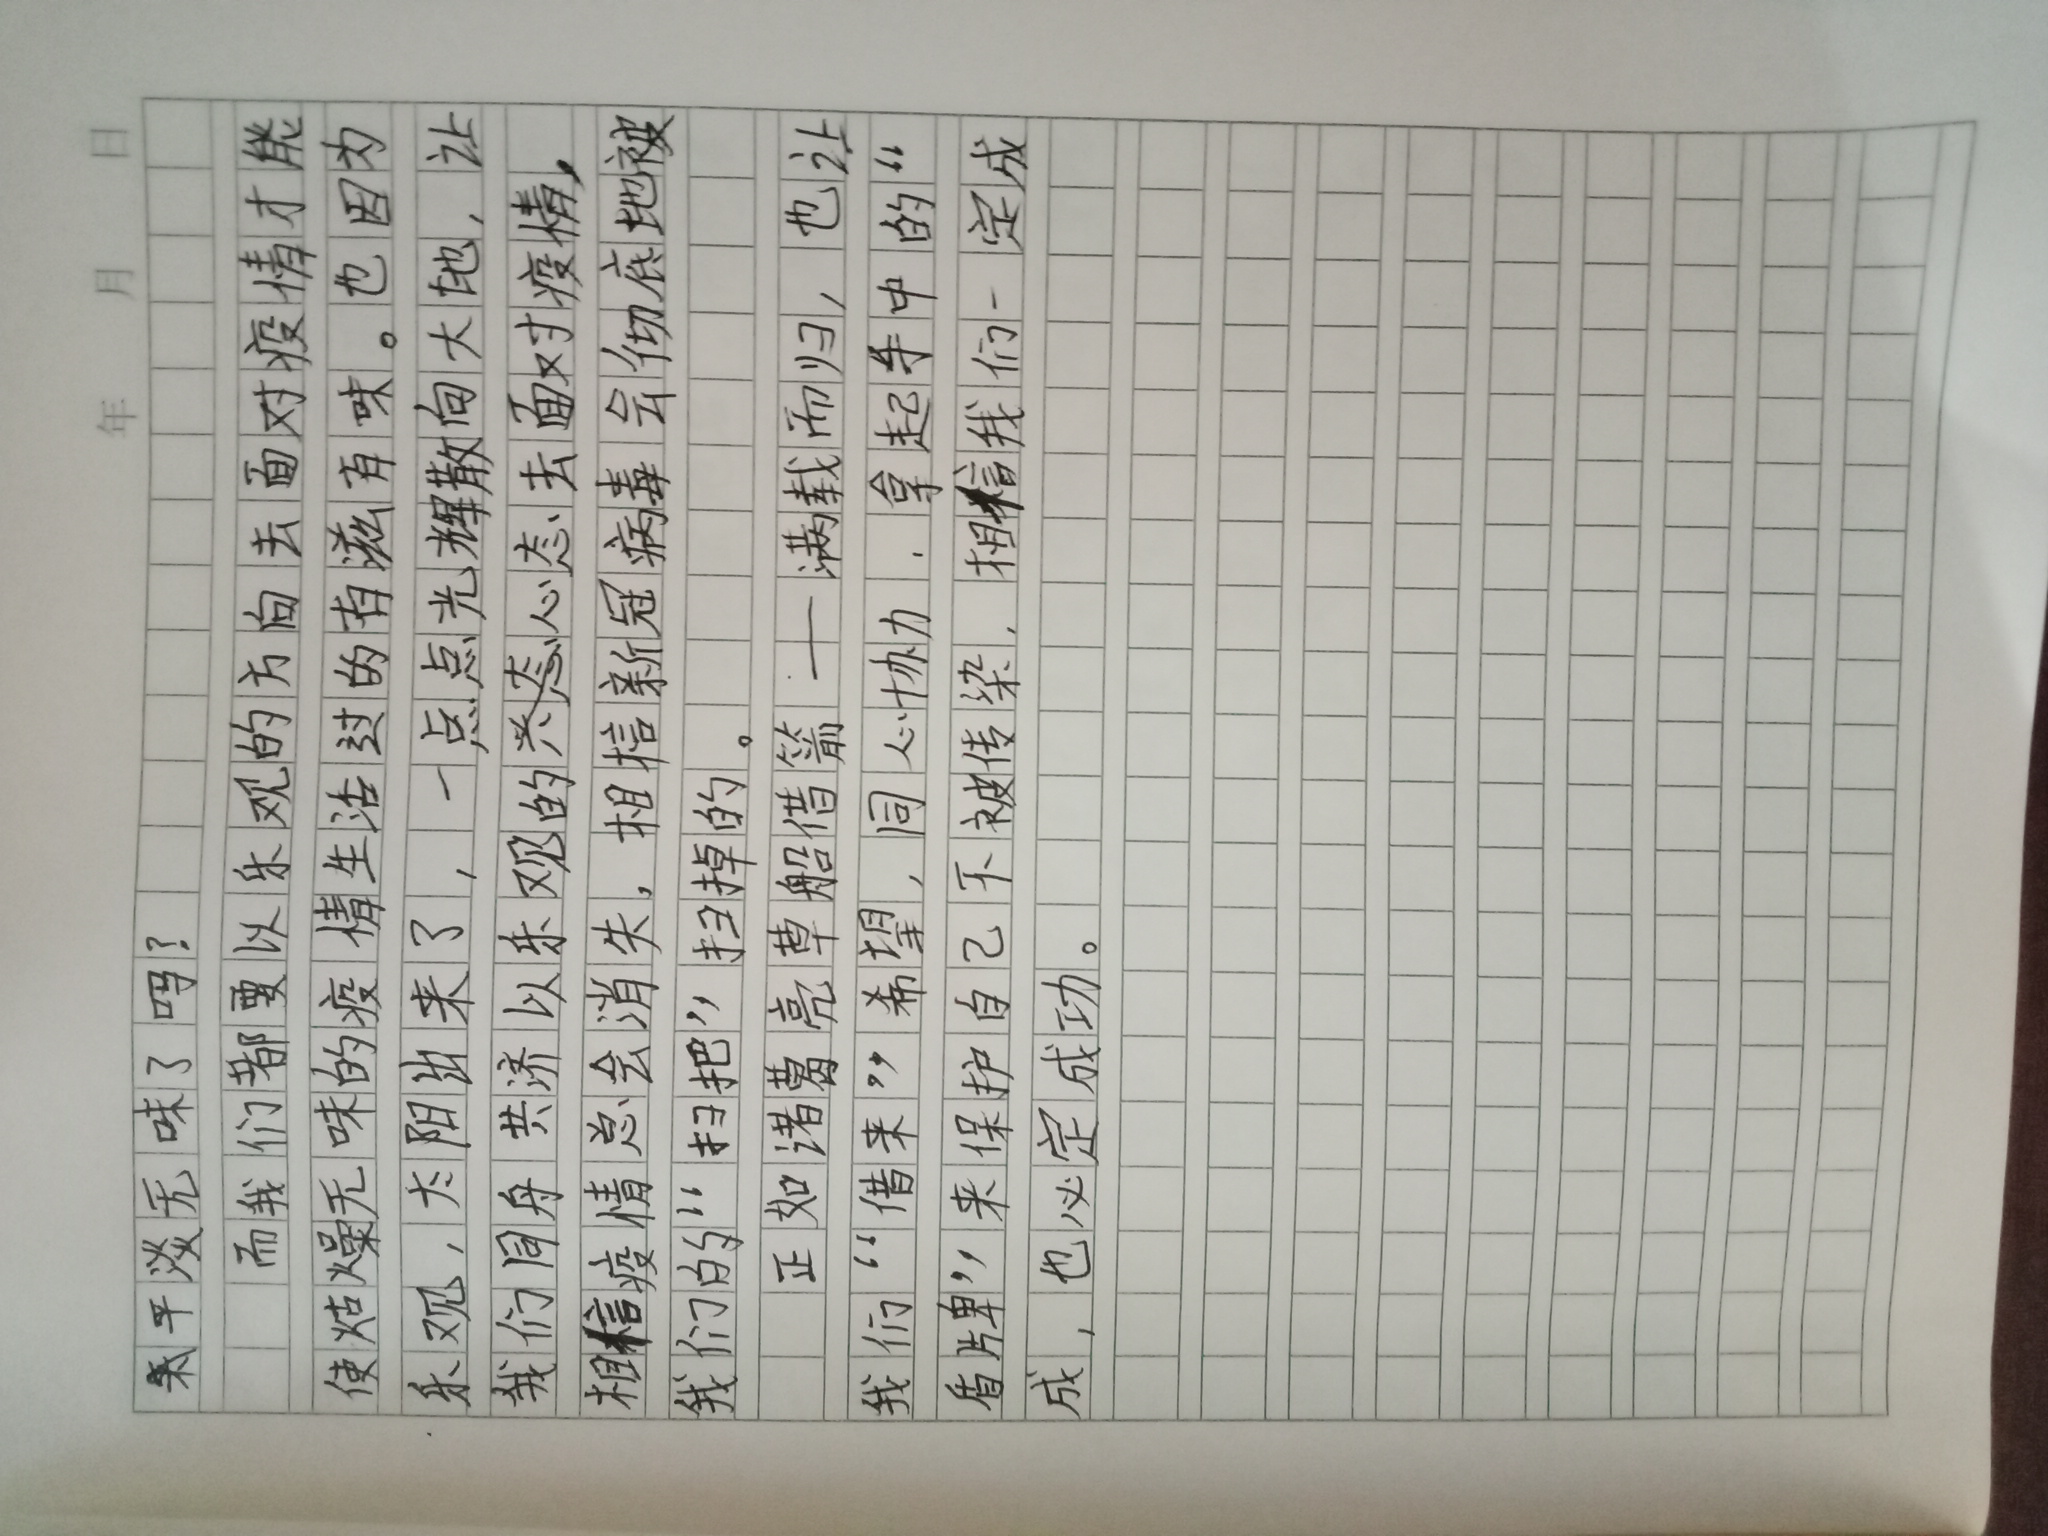 年 月 日
来平淡无味了吗？
而我们都要以乐观的方向去面对疫情才能
使枯燥无味的疫情生活过的有滋有味。也因为
乐观，太阳出来了，一点点光辉散向大地，让
我们同舟共济以乐观的心态去面对疫情，
相信疫情总会消失，相信新冠病毒会彻底地被
我们的“扫把”扫掉的。
正如诸葛亮草船借箭——满载而归，也让
我们“借来”希望，同心协力．拿起手中的“
盾牌”来保护自己不被传染，相信我们一定成
成，也必定成功。